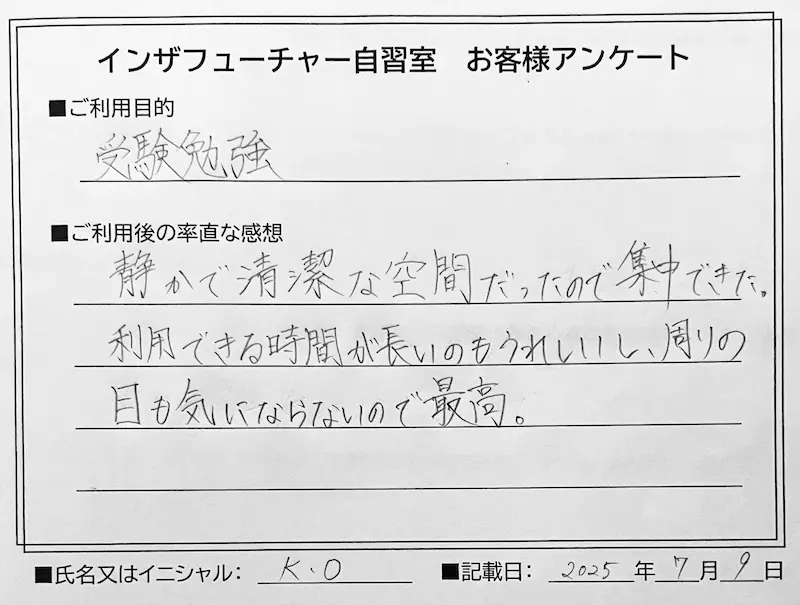 インザフューチャー自習室 お客様アンケート
■ご利用目的
受験勉強
■ご利用後の率直な感想
静かで清潔な空間だったので集中できた。
利用できる時間が長いのもうれしいし、周りの
目も気にならないので最高。
■氏名又はイニシャル： K.O ■記載日： 2025年7月9日